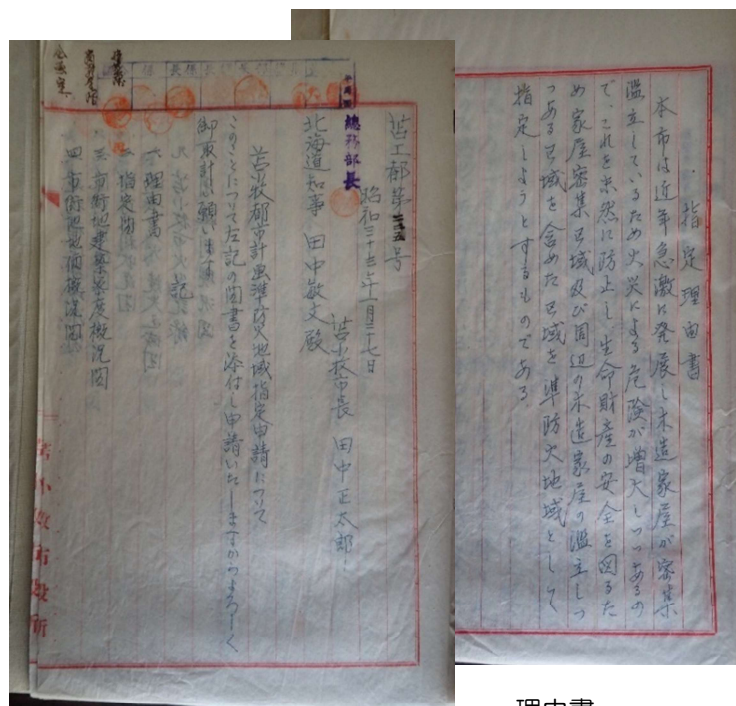 指定理由書
本市は近年急激に発展し木造家屋が密集
濫立しているため火災による危険が増大しつつあるの
で、これを未然に防止し、生命財産の安全を図るた
め家屋密集区域及び周辺の木造家屋の濫立しつ
つある区域を含めた区域を準防火地域として
指定しようとするものである
總務部長
苫工都第 号
昭和三十三年 月二十七日
北海道知事 田中敏文殿
苫小牧市長 田中正太郎
苫小牧都市計画準防火地域指定申請について
このことについて左記の図書を添付し申請いたしますからよろしく
御取計い願います
記
一、理由書
二、指定図
三、市街地建築密度概況図
四、市街地地価概況図
苫小牧市役所
理由書